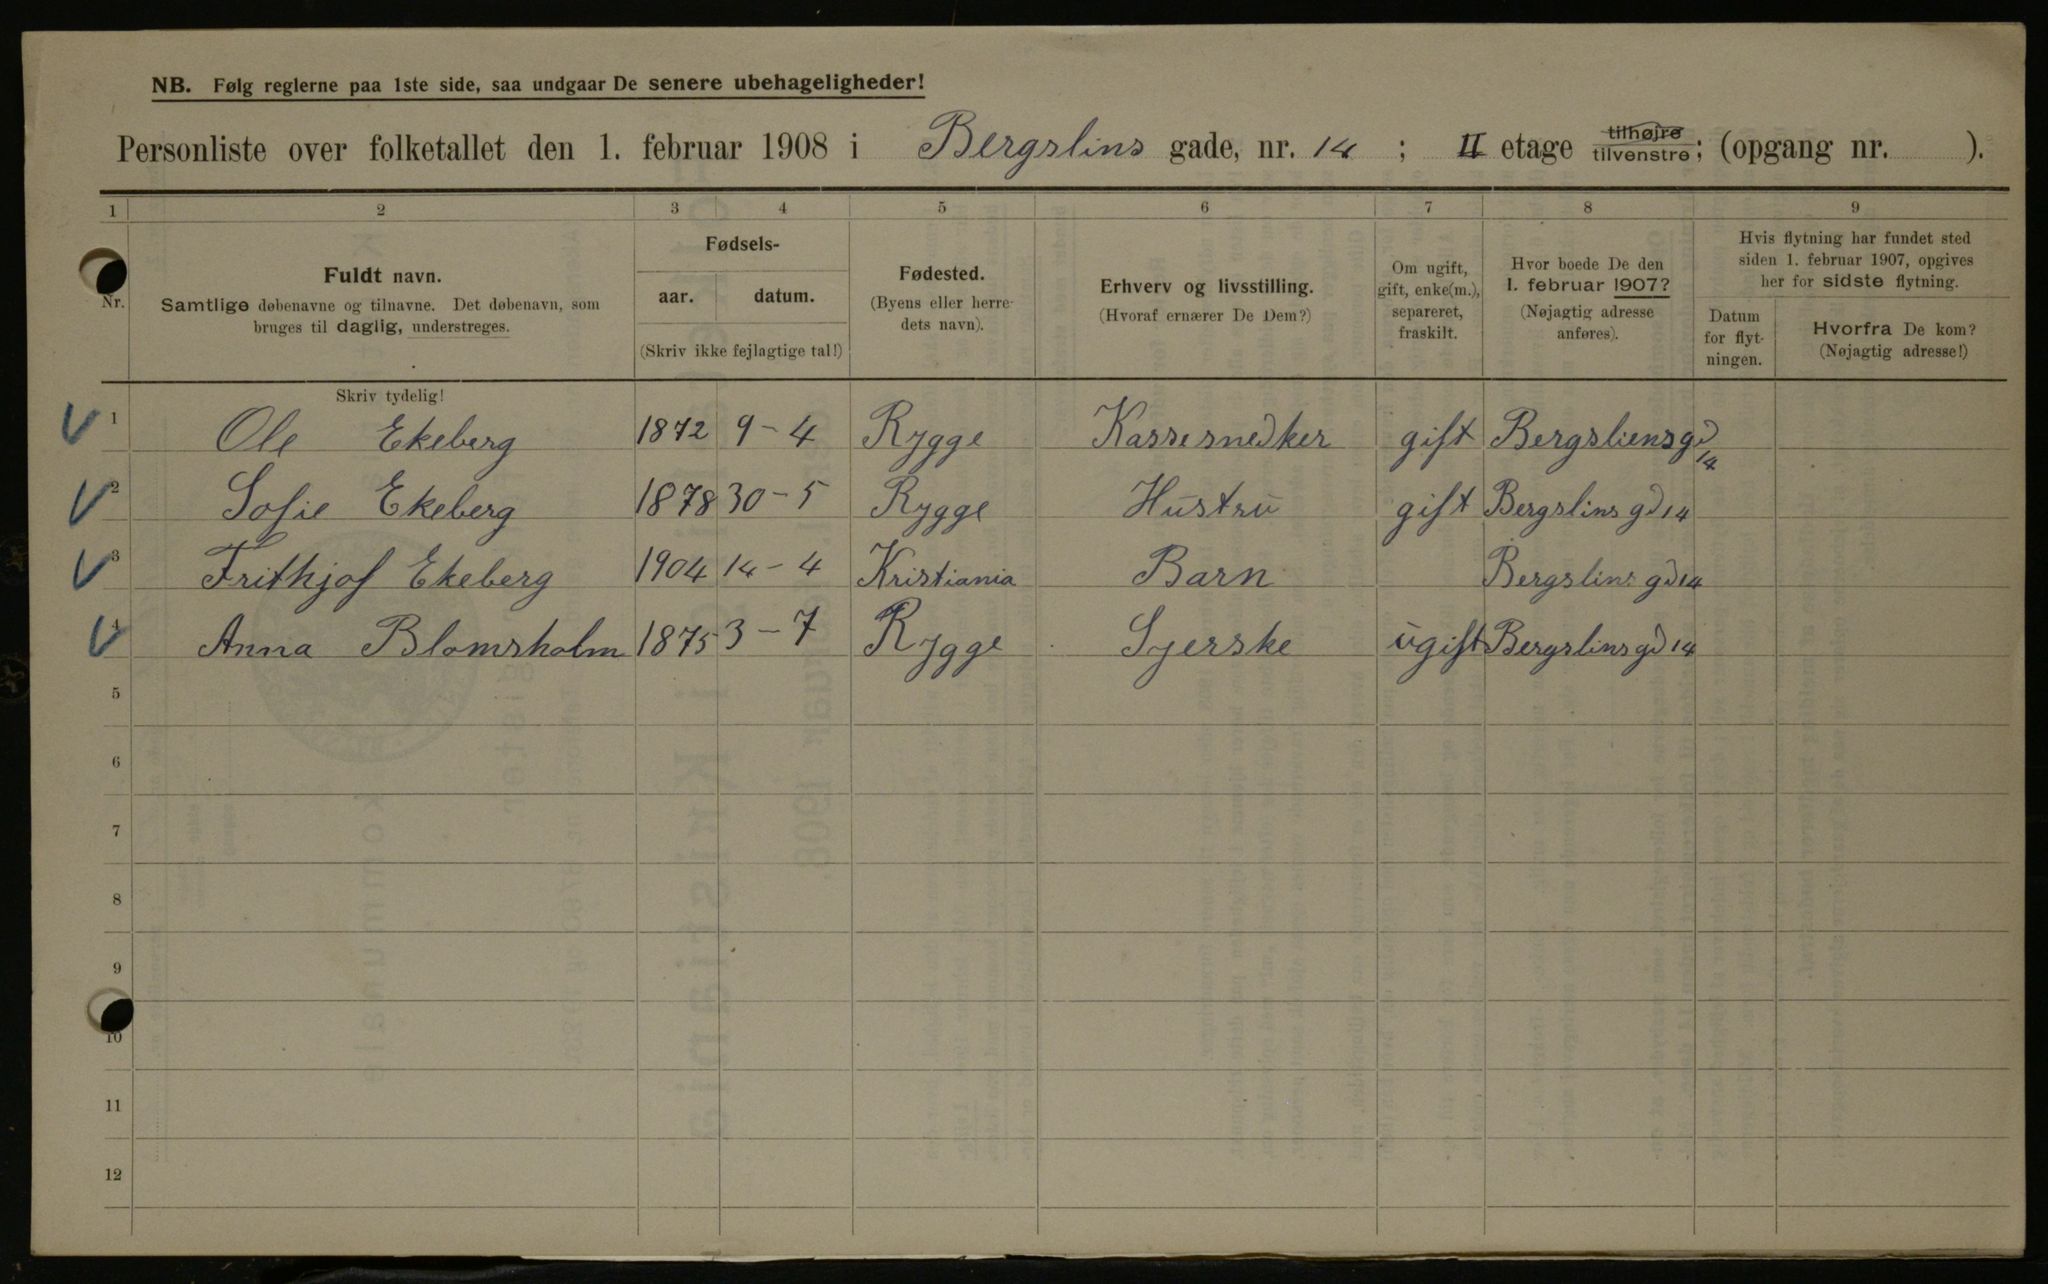 NB. Følg reglerne paa 1ste side, saa undgaar De senere ubehageligheder!
Personliste over folketallet den 1. februar 1908 i Bergslins gade, nr. 14 ; II etage tilhøjre tilvenstre; (opgang nr. ).
1 2 3 4 5 6 7 8 9
Nr.
Fuldt navn.
Samtlige døbenavne og tilnavne. Det døbenavn, som
bruges til daglig, understreges.
Fødsels-
aar. datum.
(Skriv ikke fejlagtige tal!)
Fødested.
(Byens eller herre-
dets navn).
Erhverv og livsstilling.
(Hvoraf ernærer De Dem?)
Om ugift,
gift, enke(m.),
separeret,
fraskilt.
Hvor boede De den
1. februar 1907?
(Nøjagtig adresse
anføres).
Hvis flytning har fundet sted
siden 1. februar 1907, opgives
her for sidste flytning.
Datum
for flyt-
ningen.
Hvorfra De kom?
(Nøjagtig adresse!)
Skriv tydelig!
1 Ole Ekeberg 1872 9-4 Rygge Kassesnedker gift Bergsliensgd 14
2 Sofie Ekeberg 1878 30-5 Rygge Hustru gift Bergslins gd 14
3 Frithjof Ekeberg 1904 14-4 Kristiania Barn Bergslins gd 14
4 Anna Blomsholm 1875 3-7 Rygge Syerske ugift Bergslins gd 14
5
6
7
8
9
10
11
12